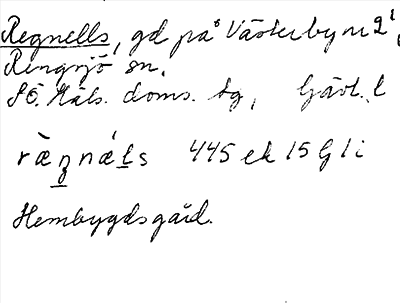 Regnells, gd på Västerby nr 2¹,
Rengsjö sn.
SÖ. Häls. doms. tg, Gävl. l
ræŋnæ´ls 445 ek 15 G 1 i
Hembygdsgård.